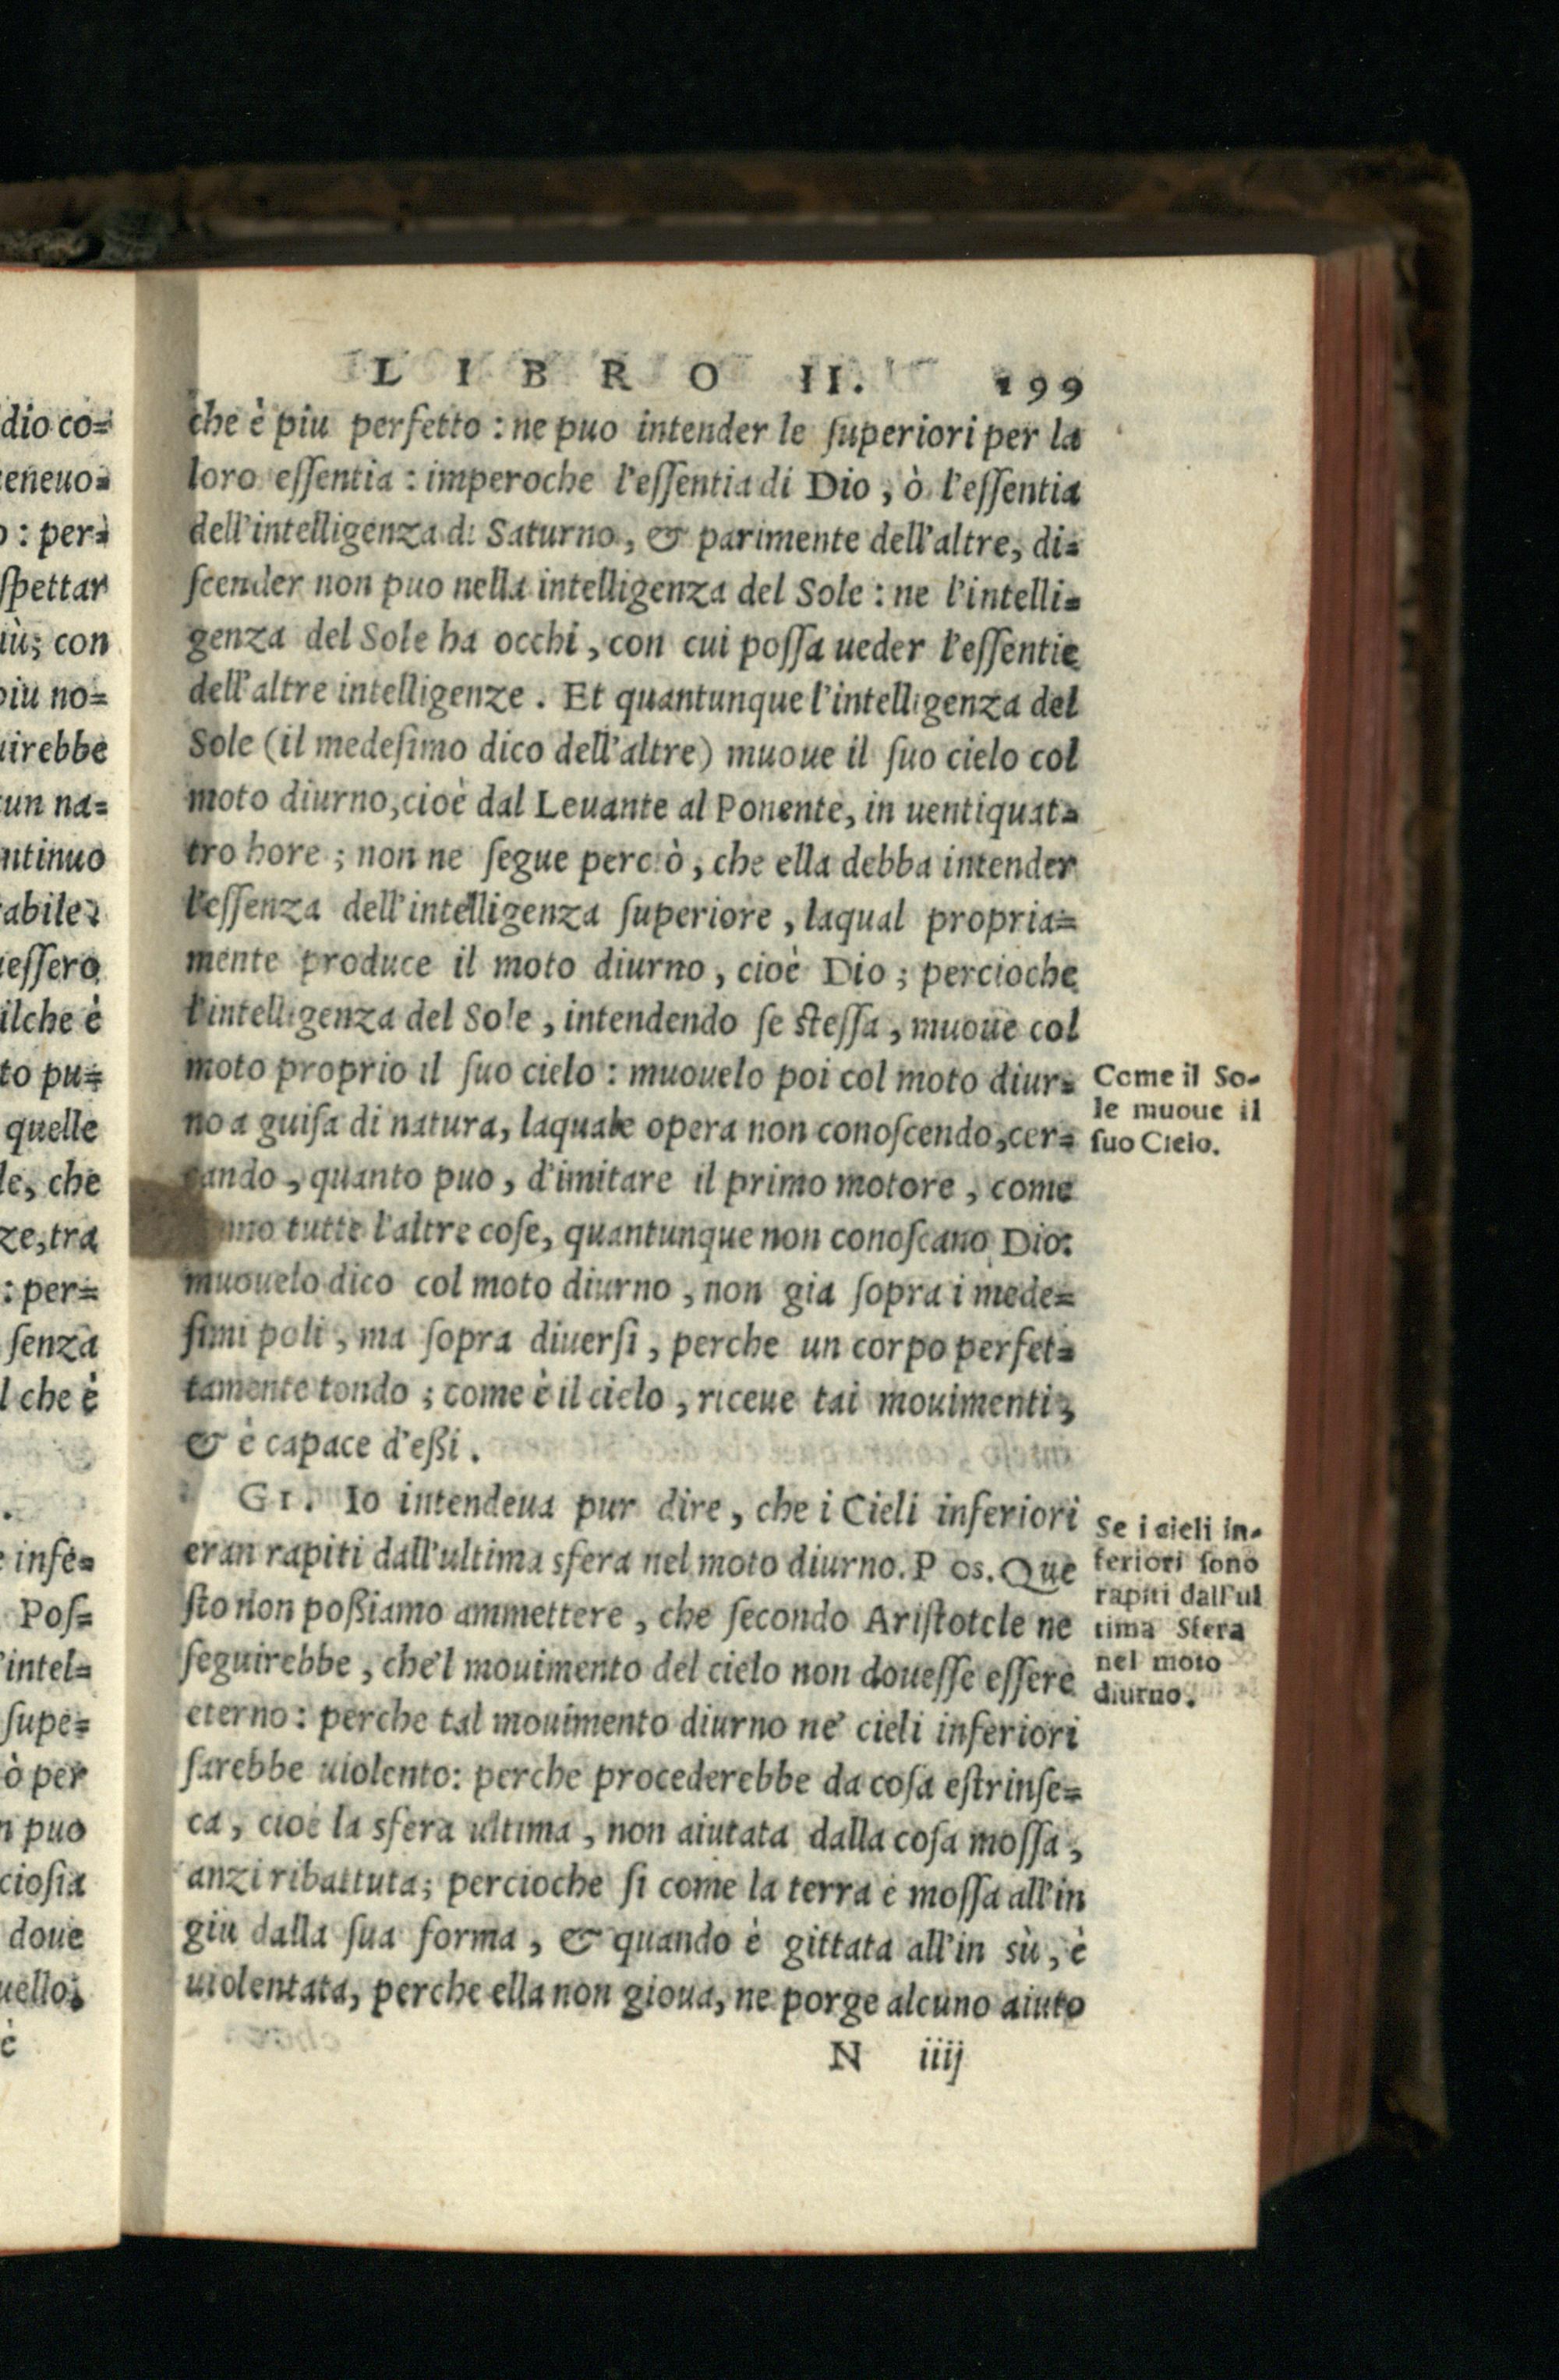 LIBRO II. 199
che è piu perfetto : ne puo intender le ſuperiori per la
loro eſſentia : imperoche l'eſſentia di Dio , ò l'eſſentia
dell'intelligenza di Saturno , & parimente dell'altre, di=
ſcender non puo nella intelligenza del Sole : ne l'intelli=
genza del Sole ha occhi , con cui poſſa ueder l'eſſentie
dell'altre intelligenze . Et quantunque l'intelligenza del
Sole (il medeſimo dico dell'altre) muoue il ſuo cielo col
moto diurno, cioè dal Leuante al Ponente, in uentiquat=
tro hore ; non ne ſegue perciò , che ella debba intender
l'eſſenza dell'intelligenza ſuperiore , laqual propria=
mente produce il moto diurno , cioè Dio ; percioche
l'intelligenza del Sole , intendendo ſe ſteſſa , muoue col
moto proprio il ſuo cielo : muouelo poi col moto diur=
no a guiſa di natura, laquale opera non conoſcendo, cer=
cando , quanto puo , d'imitare il primo motore , come
tutte l'altre coſe, quantunque non conoſcano Dio:
muouelo dico col moto diurno , non gia ſopra i mede=
ſimi poli , ma ſopra diuerſi , perche un corpo perfet=
tamente tondo ; come è il cielo , riceue tai mouimenti ,
& è capace d'eßi .
GI. Io intendeua pur dire , che i Cieli inferiori
eran rapiti dall'ultima sfera nel moto diurno. P os. Que
ſto non poßiamo ammettere , che ſecondo Ariſtotele ne
ſeguirebbe , che'l mouimento del cielo non doueſſe eſſere
eterno : perche tal mouimento diurno ne' cieli inferiori
ſarebbe uiolento: perche procederebbe da coſa eſtrinſe=
ca , cioè la sfera ultima , non aiutata dalla coſa moſſa ,
anzi ribattuta; percioche ſi come la terra è moſſa all'in
giu dalla ſua forma , & quando è gittata all'in sù , è
uiolentata, perche ella non gioua, ne porge alcuno aiuto
N iiij
Come il So-
le muoue il
ſuo Cielo.
Se i cieli in-
feriori ſono
rapiti dall'ul
tima Sfera
nel moto
diurno.
dio co=
eneuo=
: per=
ſpettar
iù; con
piu no=
uirebbe
un na=
ntinuo
abile:
ueſſero
ilche è
to pu=
quelle
le, che
ze, tra
: per=
ſenza
l che è
.
e infe=
Poſ=
'intel=
ſupe=
ò per
n puo
cioſia
doue
uello;
è